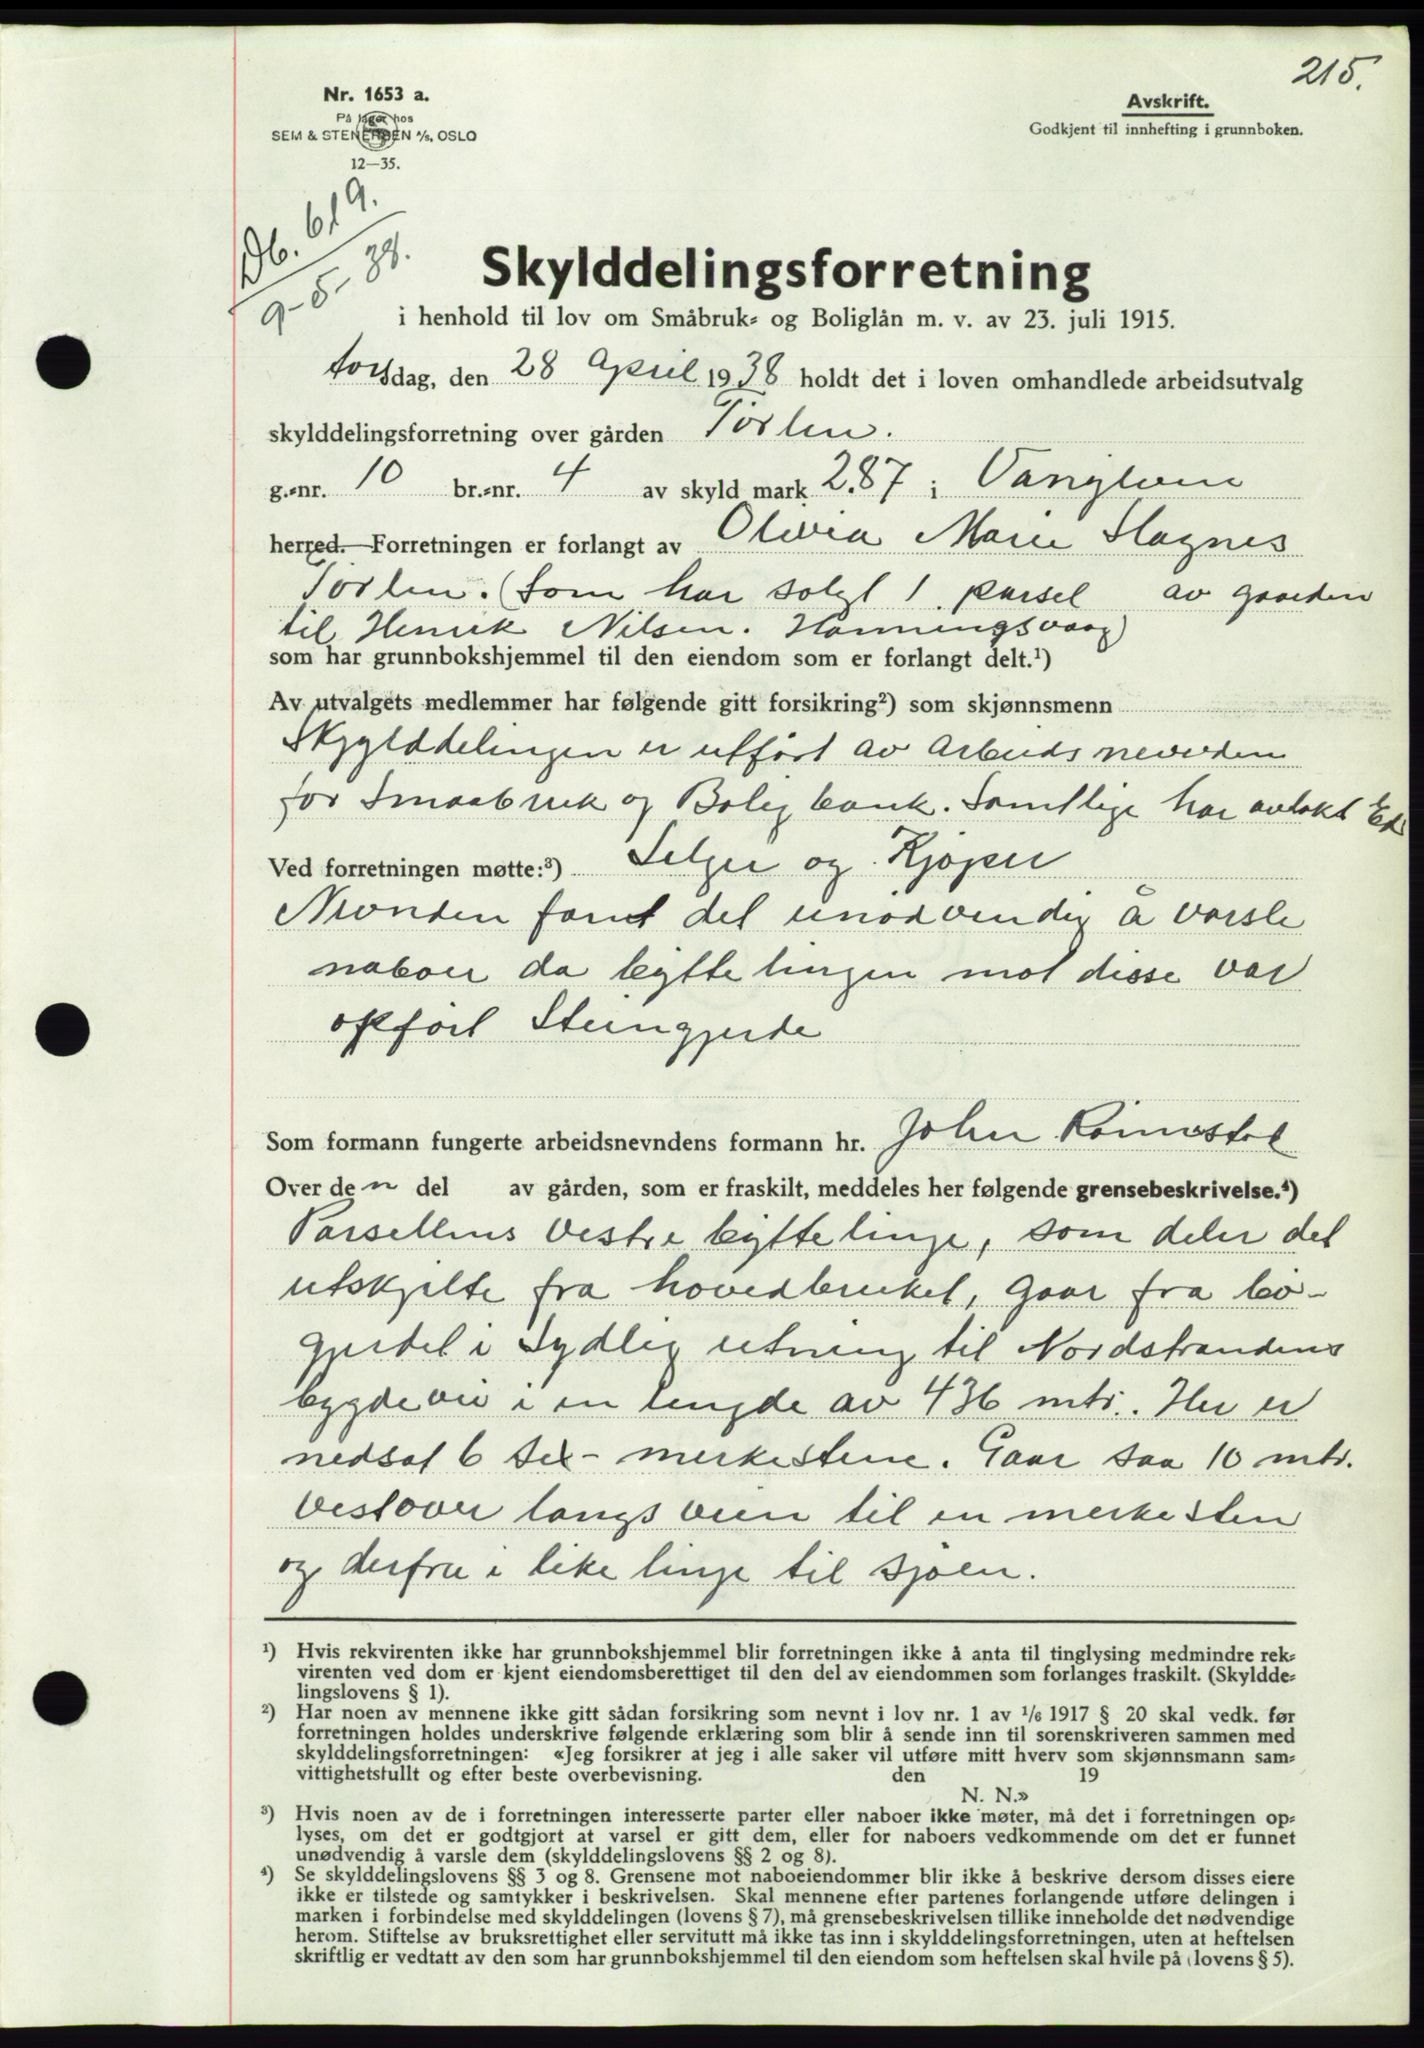 215.
Nr. 1653 a.
På lager hos
SEM & STENERSEN A/S, OSLO
12—35.
Avskrift.
Godkjent til innhefting i grunnboken.
Db. 619.
9-5-38.
Skylddelingsforretning
i henhold til lov om Småbruk- og Boliglån m. v. av 23. juli 1915.
torsdag, den 28 April 1938 holdt det i loven omhandlede arbeidsutvalg
skylddelingsforretning over gården Torlen.
g.-nr. 10 br.-nr. 4 av skyld mark 2.87 i Vanylven
herred. Forretningen er forlangt av Olivia Marie Hagnes
Torlen. (Som har solgt 1 parsel av gaarden
til Henrik Nilsen. Honningsvaag)
som har grunnbokshjemmel til den eiendom som er forlangt delt.¹)
Av utvalgets medlemmer har følgende gitt forsikring²) som skjønnsmenn
Skylddelingen er utført av Arbeidsnevnden
for Smaabruk og Boligbank. Samtlige har avlakt Ed
Ved forretningen møtte:³) Selger og Kjøper
Nevnden fant det unødvendig å varsle
naboer da byttelingen mot disse var
opført Steingjerde
Som formann fungerte arbeidsnevndens formann hr. John Rimestad
Over den del av gården, som er fraskilt, meddeles her følgende grensebeskrivelse.⁴)
Parsellens vestre byttelinje, som deler det
utskjilte fra hovedbruket, gaar fra bø-
gjerdet i Sydlig retning til Nordstrandens
bygdevei i en lengde av 436 mtr. Her er
nedsat 6 sex- merkestene. Gaar saa 10 mtr.
vestover langs veien til en merkesten
og derfra i like linje til sjøen.
¹) Hvis rekvirenten ikke har grunnbokshjemmel blir forretningen ikke å anta til tinglysing medmindre rek-
virenten ved dom er kjent eiendomsberettiget til den del av eiendommen som forlanges fraskilt. (Skyldde-
lingslovens § 1).
²) Har noen av mennene ikke gitt sådan forsikring som nevnt i lov nr. 1 av 1/6 1917 § 20 skal vedk. før
forretningen holdes underskrive følgende erklæring som blir å sende inn til sorenskriveren sammen med
skylddelingsforretningen: «Jeg forsikrer at jeg i alle saker vil utføre mitt hverv som skjønnsmann sam-
vittighetsfullt og efter beste overbevisning. den 19
N. N.»
³) Hvis noen av de i forretningen interesserte parter eller naboer ikke møter, må det i forretningen op-
lyses, om det er godtgjort at varsel er gitt dem, eller for naboers vedkommende om det er funnet
unødvendig å varsle dem (skylddelingslovens §§ 2 og 8).
⁴) Se skylddelingslovens §§ 3 og 8. Grensene mot naboeiendommer blir ikke å beskrive dersom disses eiere
ikke er tilstede og samtykker i beskrivelsen. Skal mennene efter partenes forlangende utføre delingen i
marken i forbindelse med skylddelingen (lovens § 7), må grensebeskrivelsen tillike inneholde det nødvendige
herom. Stiftelse av bruksrettighet eller servitutt må ikke tas inn i skylddelingsforretningen, uten at heftelsen
skriftlig er vedtatt av den som har grunnbokshjemmel til den eiendom som heftelsen skal hvile på (lovens § 5).